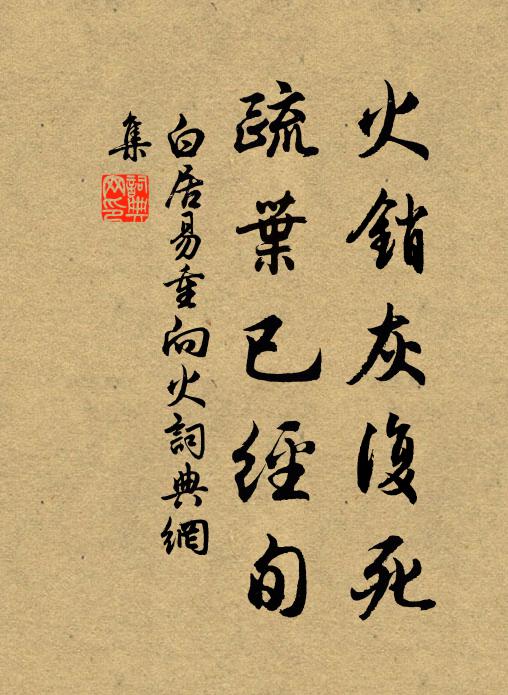 火銷灰復死
疏葉已經旬
白居易重向火詞典網
集
詞典
网印